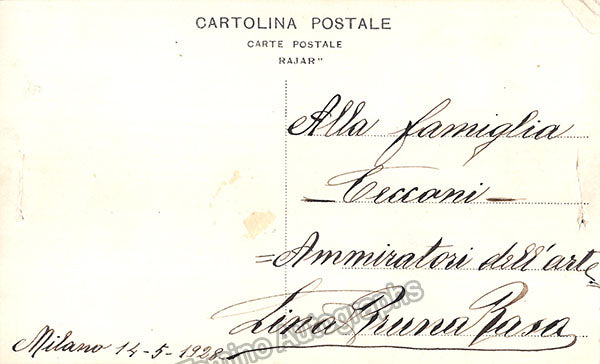 CARTOLINA POSTALE
CARTE POSTALE
RAJAR"
Alla famiglia
— Cecconi —
= Ammiratori dell'arte =
Lina Bruna Rasa
Milano 14-5-1928
Tamino Autographs